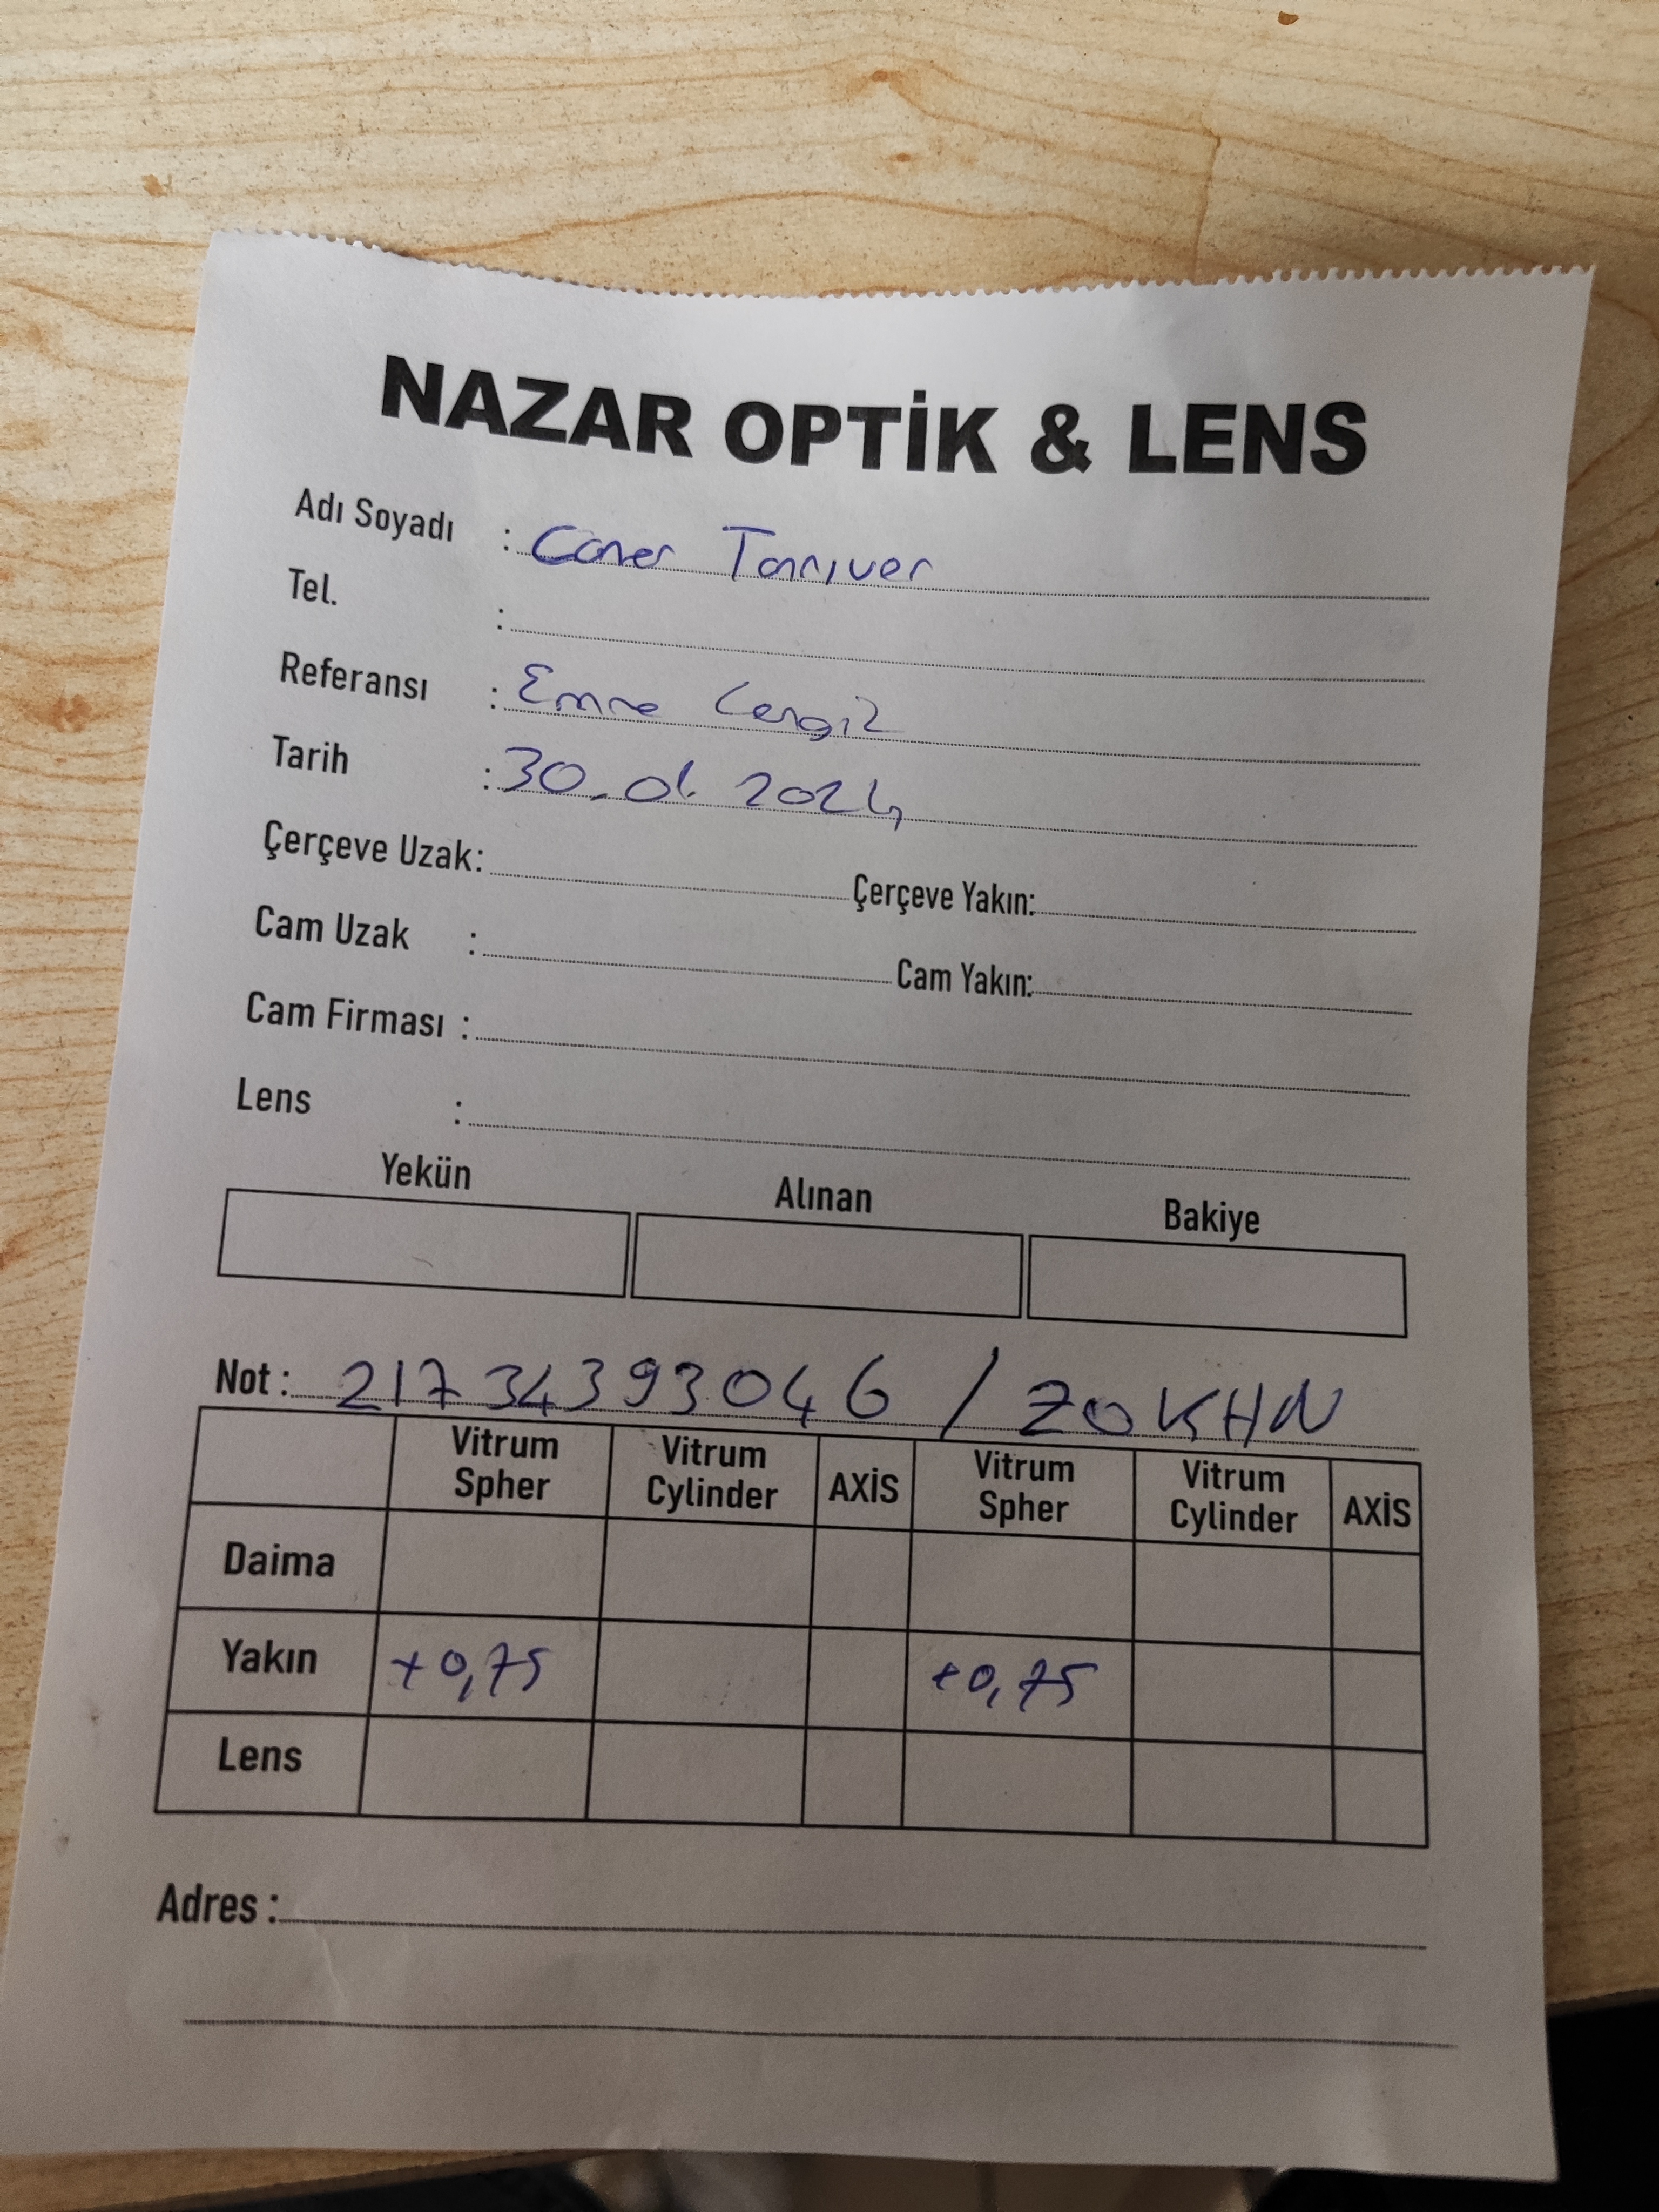 NAZAR OPTİK & LENS
Adı Soyadı : Caner Tanrıver
Tel. :
Referansı : Emre Cengiz
Tarih : 30.01.2024
Çerçeve Uzak: Çerçeve Yakın:
Cam Uzak : Cam Yakın:
Cam Firması :
Lens :
Yekün Alınan Bakiye
Not : 21734393046 / ZOKHN
Vitrum Spher Vitrum Cylinder AXİS Vitrum Spher Vitrum Cylinder AXİS
Daima
Yakın +0,75 +0,75
Lens
Adres :